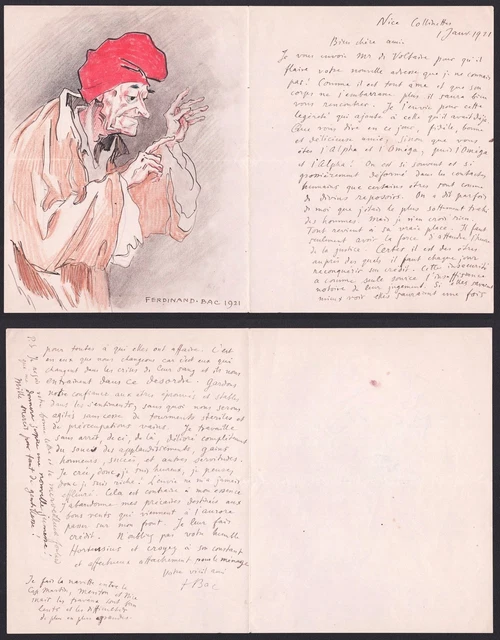 FERDINAND-BAC 1921
Nice Collinettes
1 Janv. 1921
Bien chère amie
Je vous envoie Mr de Voltaire pour qu'il
flaire votre nouvelle adresse que je ne connais
pas! Comme il est tout âme et que son
corps ne l'embarrasse plus il saura bien
vous rencontrer. Je l'envoie pour cette
légèreté qui ajoute à celle qu'il avait déjà.
Que vous dire en ce jour, fidèle, bonne
et délicieuse amie, sinon que vous
êtes l'Alpha et l'Oméga, puis l'Oméga
et l'Alpha! On est si souvent et si
grossièrement déformé dans les contacts
humains que certains êtres sont comme
de divins reposoirs. On a dit parfois
de moi que j'étais le plus
des hommes. Mais je n'en crois rien.
Tout revient à sa vraie place. Il faut
seulement avoir la force d'attendre l'heure
de la justice. Certes il est des êtres
auprès des quels il faut chaque jour
reconquérir son crédit. Cette insécurité
a comme seule source l'insuffisance
notoire de leur jugement. Si
mieux voir elles sauraient une fois
pour toutes à qui elles ont affaire. C'est
en eux que nous changeons car c'est eux qui
changent dans les crises de leur sang et ils nous
entraînent dans ce désordre. Gardons
notre confiance aux êtres éprouvés et stables
dans les sentiments, sans quoi nous serons
agités sans cesse de tourments stériles et
de préoccupations vaines. Je travaille
sans arrêt, deci, delà, délivré complètement
du souci des applaudissements, gains
honneurs, succès et autres servitudes.
Je crée, donc je suis heureux, je pense,
donc je suis riche! L'envie ne m'a jamais
effleuré. Cela est contraire à mon essence
J'abandonne mes précaires destinées aux
bons vents qui viennent à l'aurore
passer sur mon front. Je leur fais
crédit. N'oubliez pas votre humble
Hortensius et croyez à son constant
et affectueux attachement pour le ménage
Votre vieil ami
F. Bac
Je fais la navette entre le
Cap Martin, Menton et Nice
mais les travaux sont bien
lents et les difficultés
de plus en plus grandes.
P.S. Je reçois votre bonne lettre et la merveilleuse
que me
Mille mercis pour tant de gentillesse!